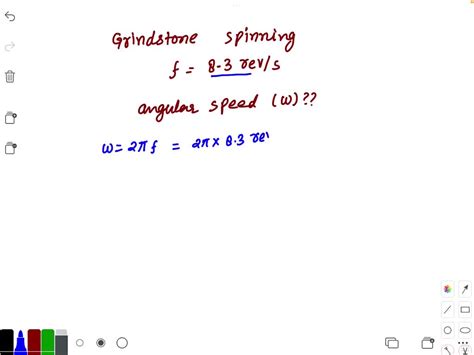 Grindstone spinning
f = 8.3 rev/s
angular speed (ω)??
ω = 2πf = 2π × 8.3 re